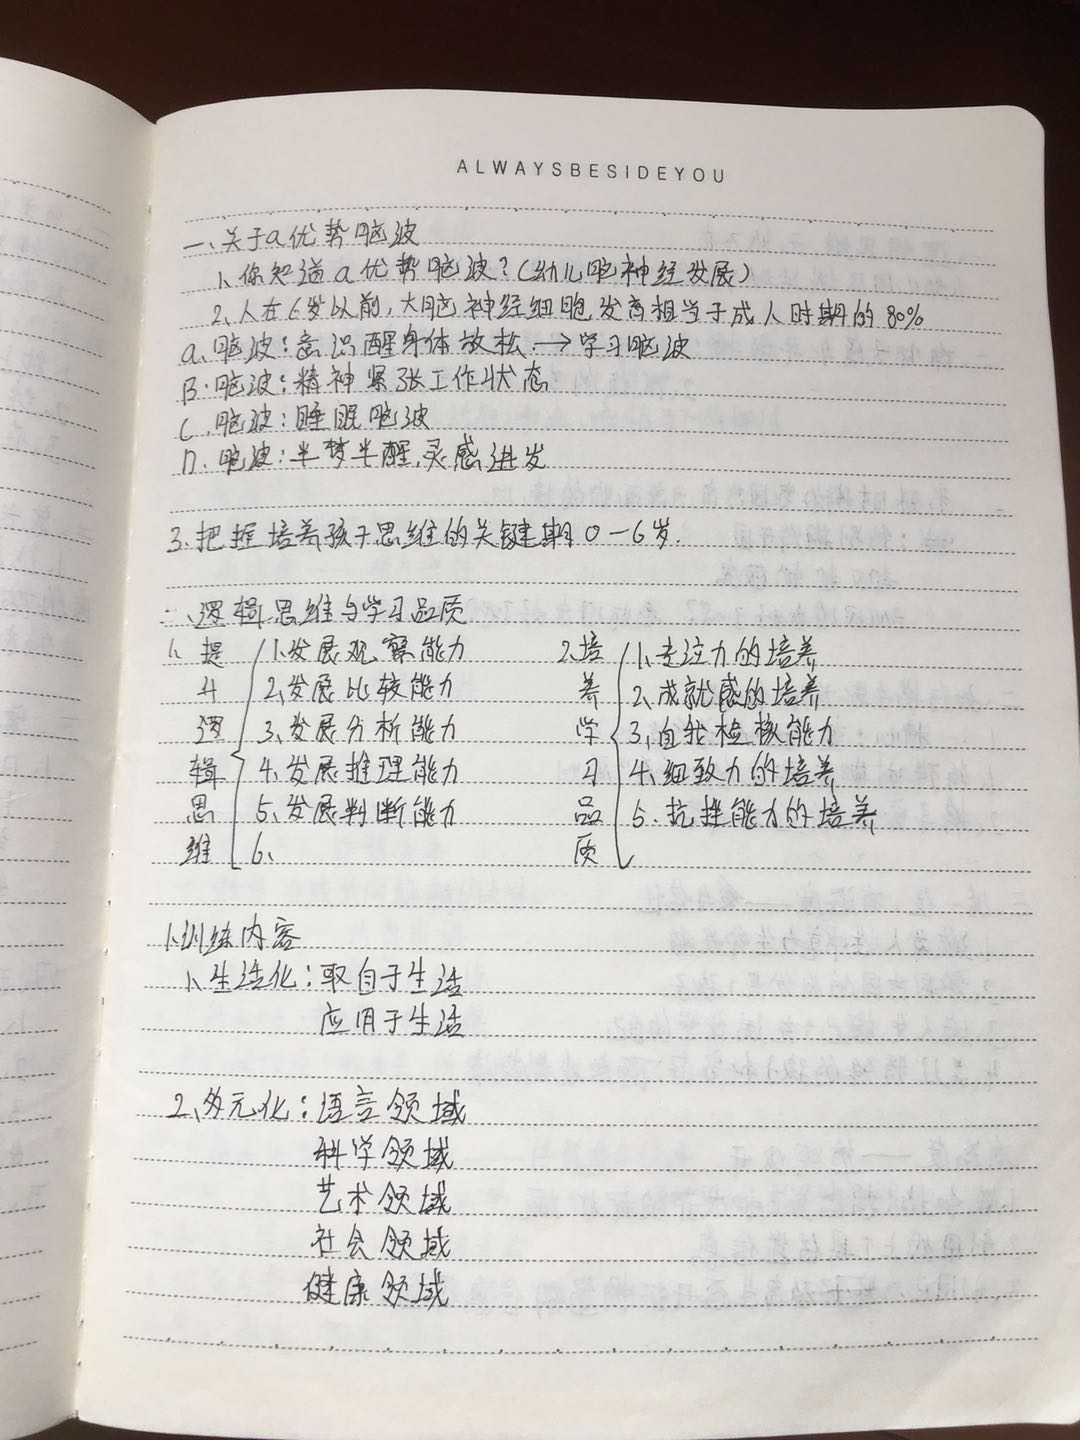 ALWAYSBESIDEYOU
一、关于a优势脑波
1、你知道a优势脑波?(幼儿脑神经发展)
2、人在6岁以前,大脑神经细胞发育相当于成人时期的80%
a、脑波:意识醒身体放松→学习脑波
B·脑波:精神紧张工作状态
C、脑波:睡眠脑波
D、脑波:半梦半醒,灵感迸发
3、把握培养孩子思维的关键期0-6岁.
二、逻辑思维与学习品质
1、提升逻辑思维
1、发展观察能力
2、发展比较能力
3、发展分析能力
4、发展推理能力
5、发展判断能力
6、
2、培养学习品质
1、专注力的培养
2、成就感的培养
3、自我检核能力
4、细致力的培养
5·抗挫能力的培养
1、训练内容
1、生活化:取自于生活
应用于生活
2、多元化:语言领域
科学领域
艺术领域
社会领域
健康领域